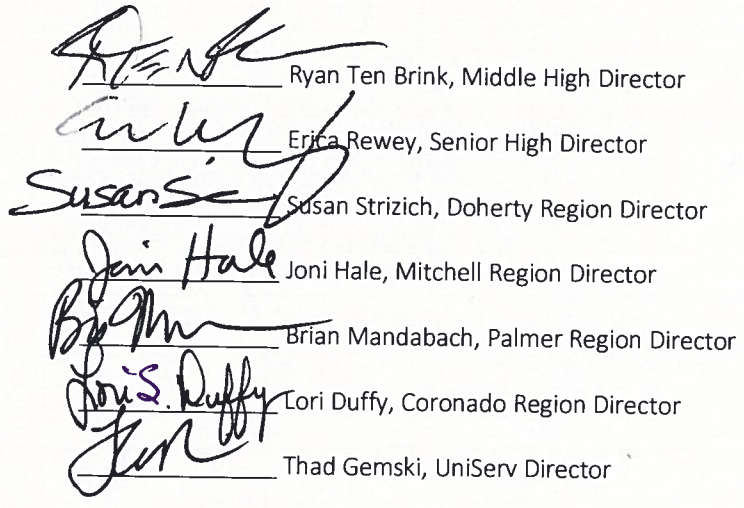 Ryan Ten Brink, Middle High Director
Erica Rewey, Senior High Director
Susan Strizich, Doherty Region Director
Joni Hale Joni Hale, Mitchell Region Director
Brian Mandabach, Palmer Region Director
Lori S. Duffy Lori Duffy, Coronado Region Director
Thad Gemski, UniServ Director